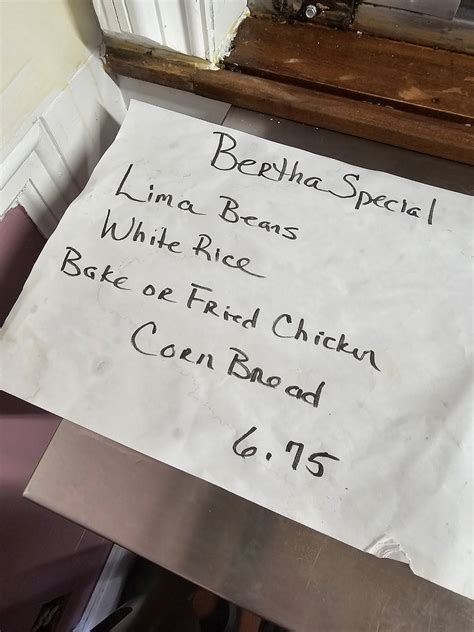 Bertha Special
Lima Beans
White Rice
Bake or Fried Chicken
Corn Bread
6.75